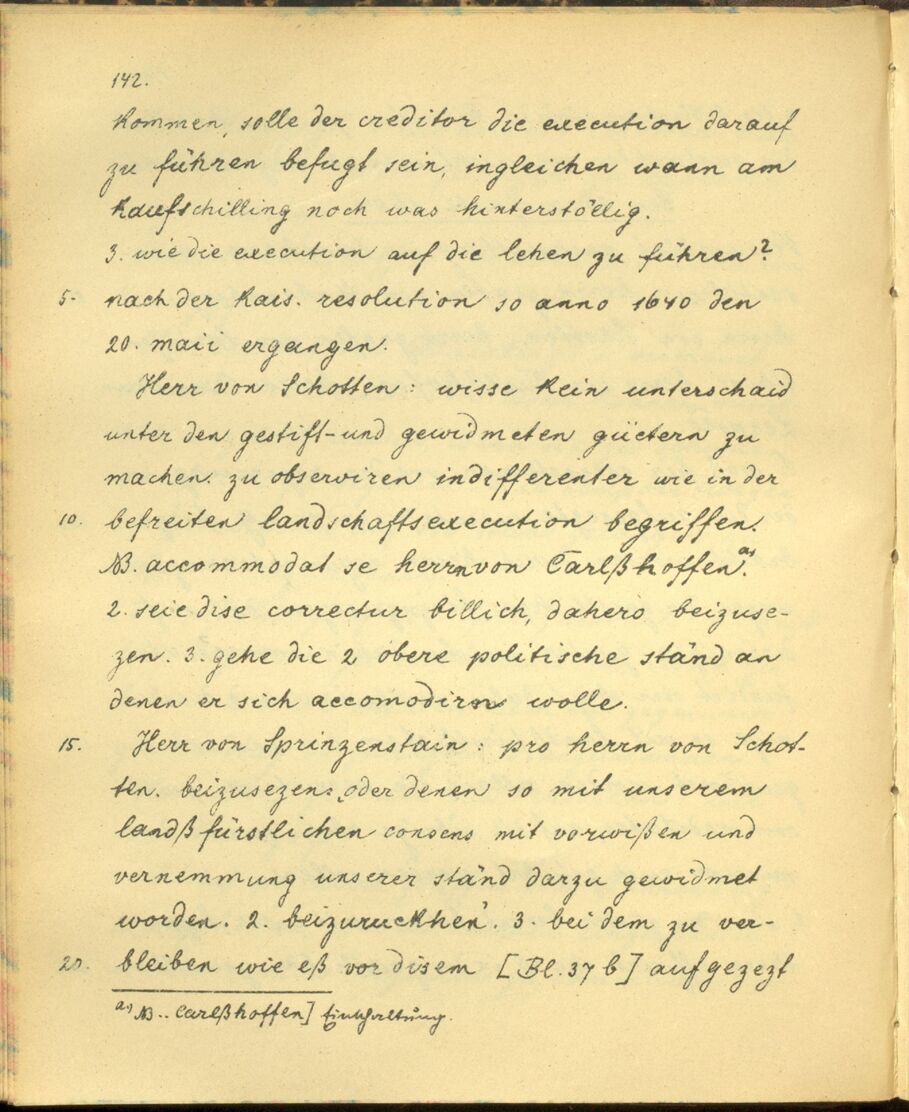 142.
kommen, solle der creditor die execution darauf
zu führen befugt sein, ingleichen wann am
kaufschilling noch was hinterstöllig.
3. wie die execution auf die lehen zu führen?
5. nach der kais. resolution so anno 1640 den
20. maii ergangen.
Herr von Schotten: wisse kein unterschaid
unter den gestift- und gewidmeten güetern zu
machen. zu observiren indifferenter wie in der
10. befreiten landschaftsexecution begriffen.
NB. accommodat se herrn von Carlßhoffen.a)
2. seie dise correctur billich, dahero beizuse-
zen. 3. gehe die 2 obere politische ständ an
denen er sich accomodirn wolle.
15. Herr von Sprinzenstain: pro herrn von Schot-
ten. beizusezen: „oder denen so mit unserem
landßfürstlichen consens mit vorwißen und
vernemmung unserer ständ darzu gewidmet
worden. 2. beizuruckhen'. 3. bei dem zu ver-
20. bleiben wie eß vor disem [Bl. 37 b] aufgezezt
a) NB.. Carlßhoffen] Einschaltung.